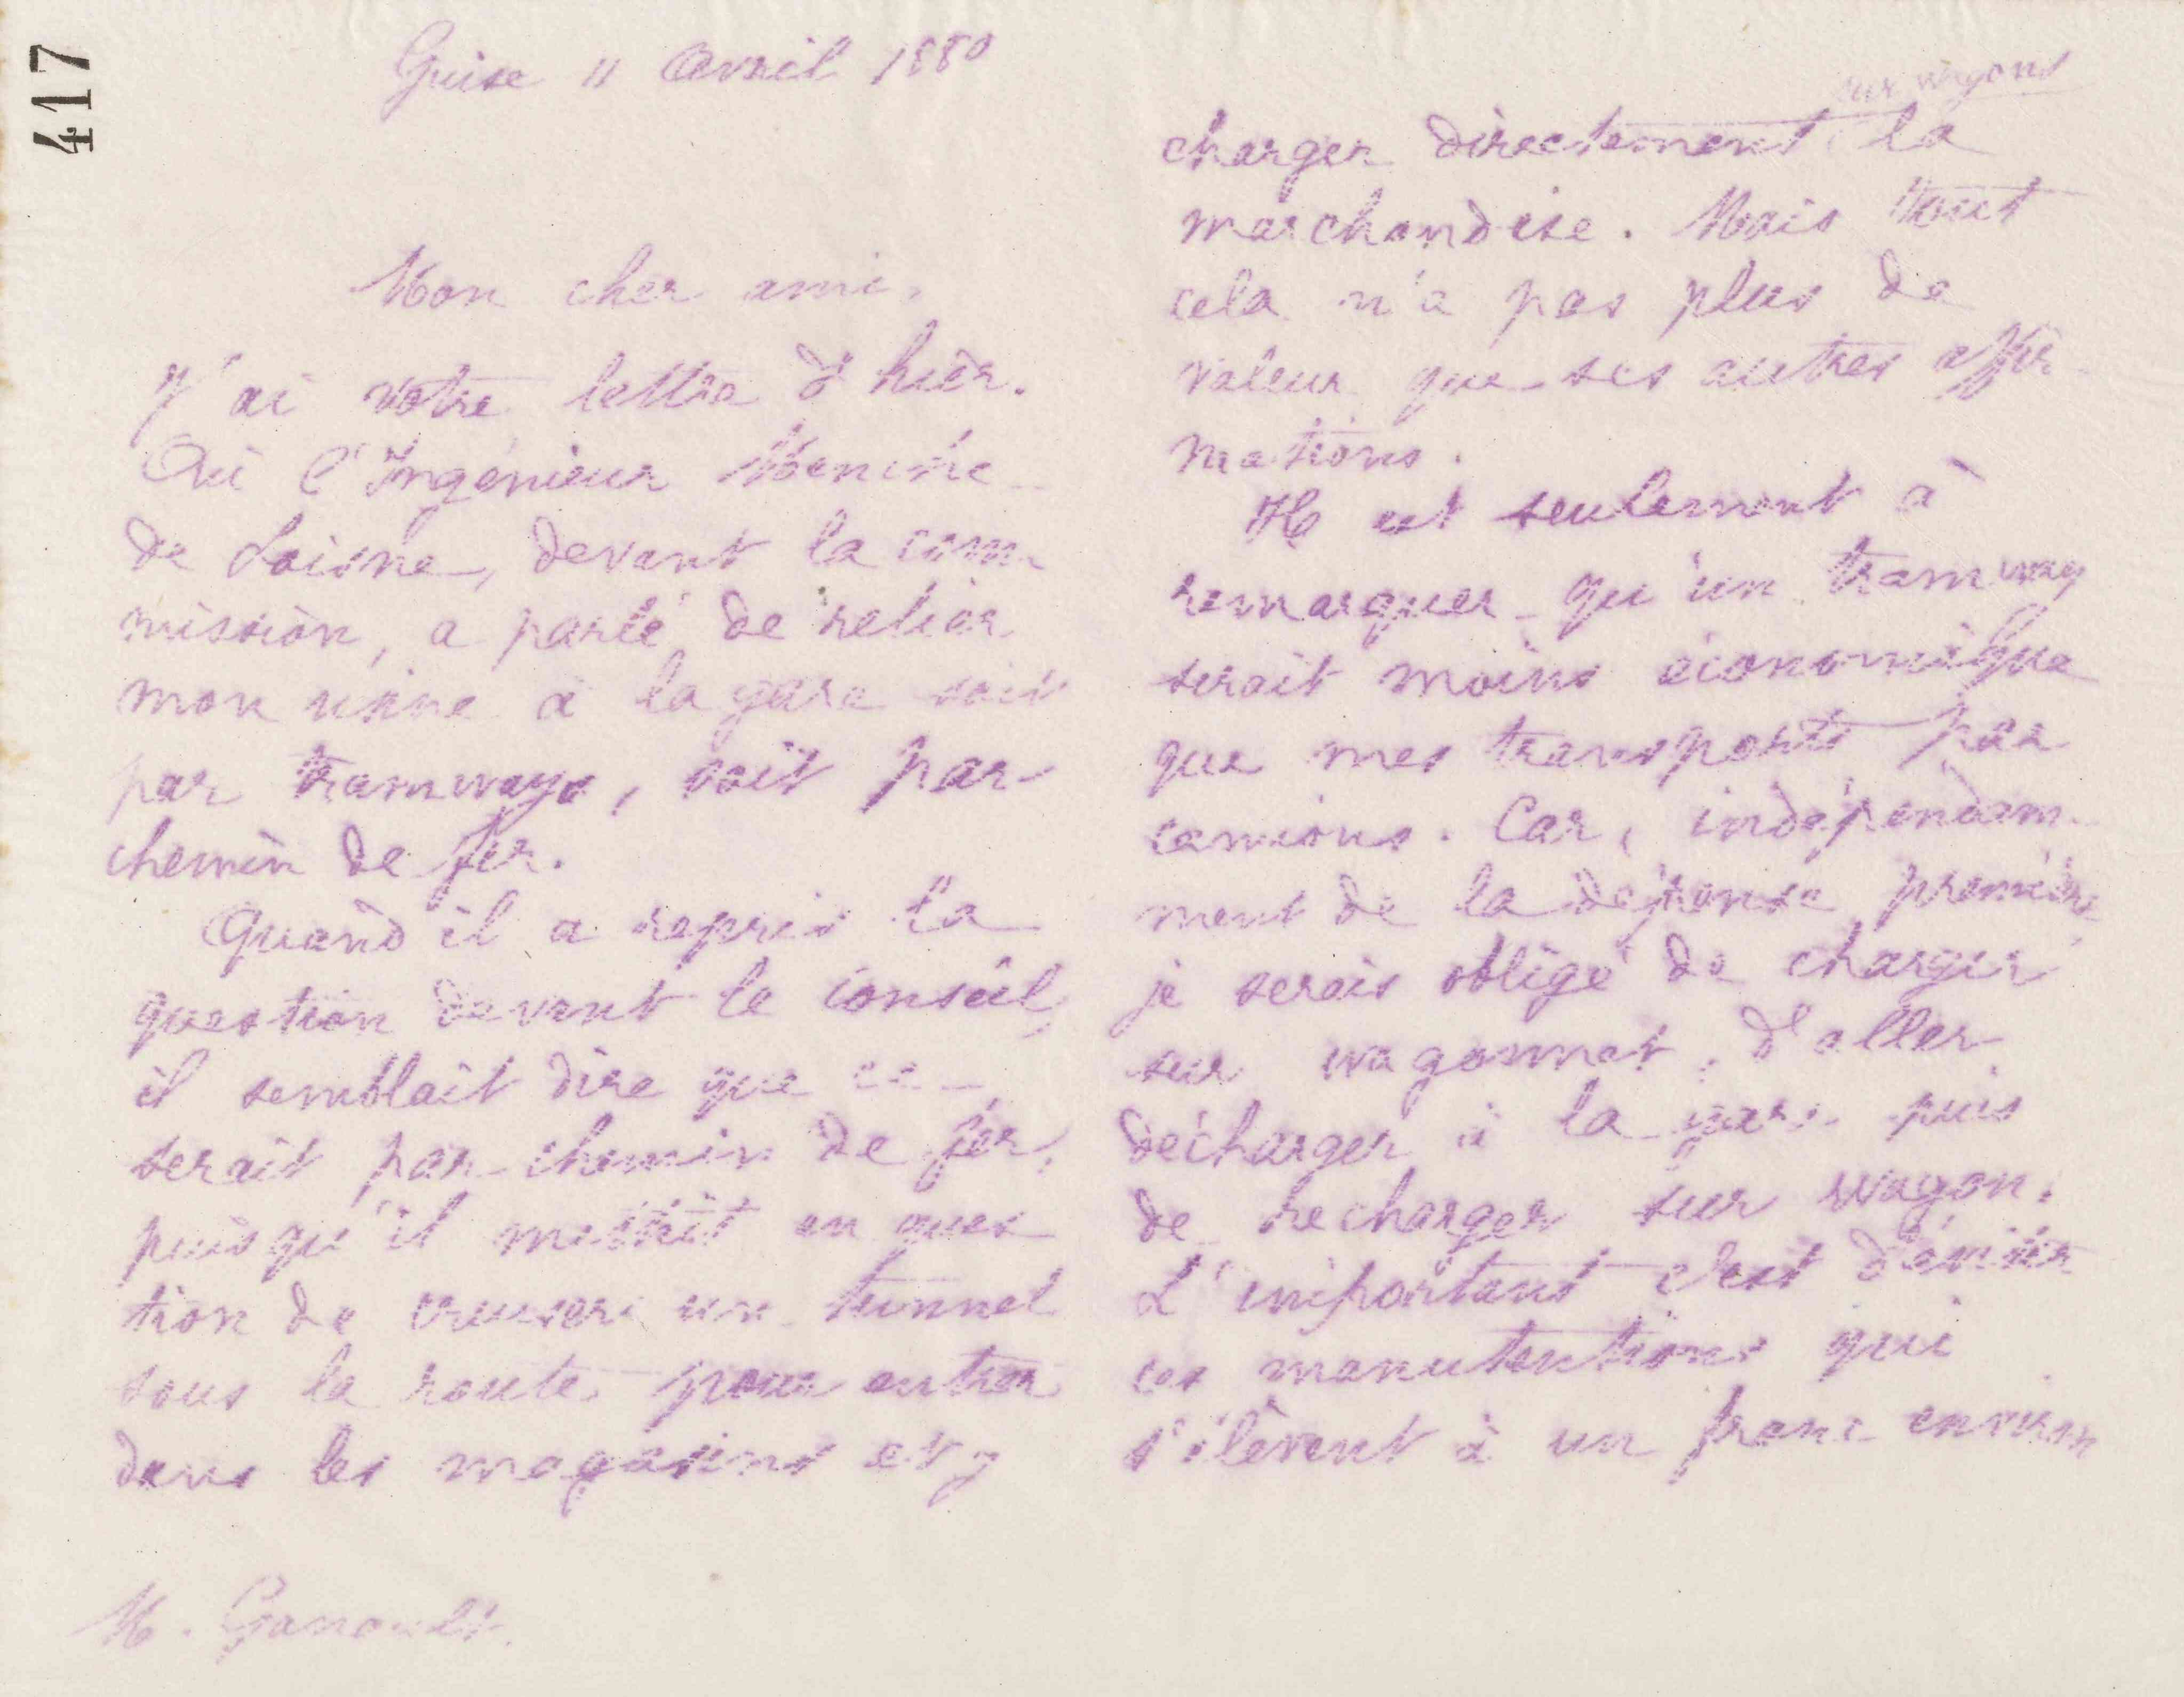 417
Guise 11 Avril 1880
Mon cher ami,
J'ai votre lettre d'hier.
Oui l'Ingénieur Menche
de Loisne, devant la com
mission, a parlé de relier
mon usine à la gare soit
par tramways, soit par
chemin de fer.
Quand il a repris la
question devant le conseil,
il semblait dire que ce
serait par chemin de fer,
puisqu'il mettait en ques
tion de creuser un tunnel
sous la route pour entrer
dans les magasins et y
M. Ganault
sur wagons
charger directement la
marchandise. Mais tout
cela n'a pas plus de
valeur que ses autres affir
mations.
Il est seulement à
remarquer qu'un tramway
serait moins économique
que mes transports par
camions. Car, indépendam
ment de la dépense première,
je serais obligé de charger
sur wagonnet, d'aller
décharger à la gare puis
de recharger sur wagon.
L'important c'est d'éviter
ces manutentions qui
s'élèvent à un franc environ